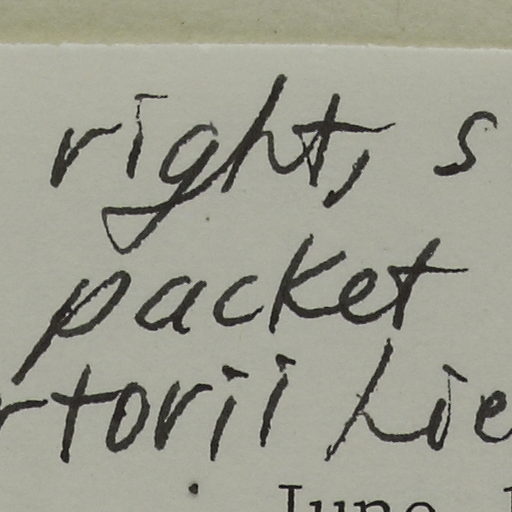 right, s
packet
rtorii Lie
June